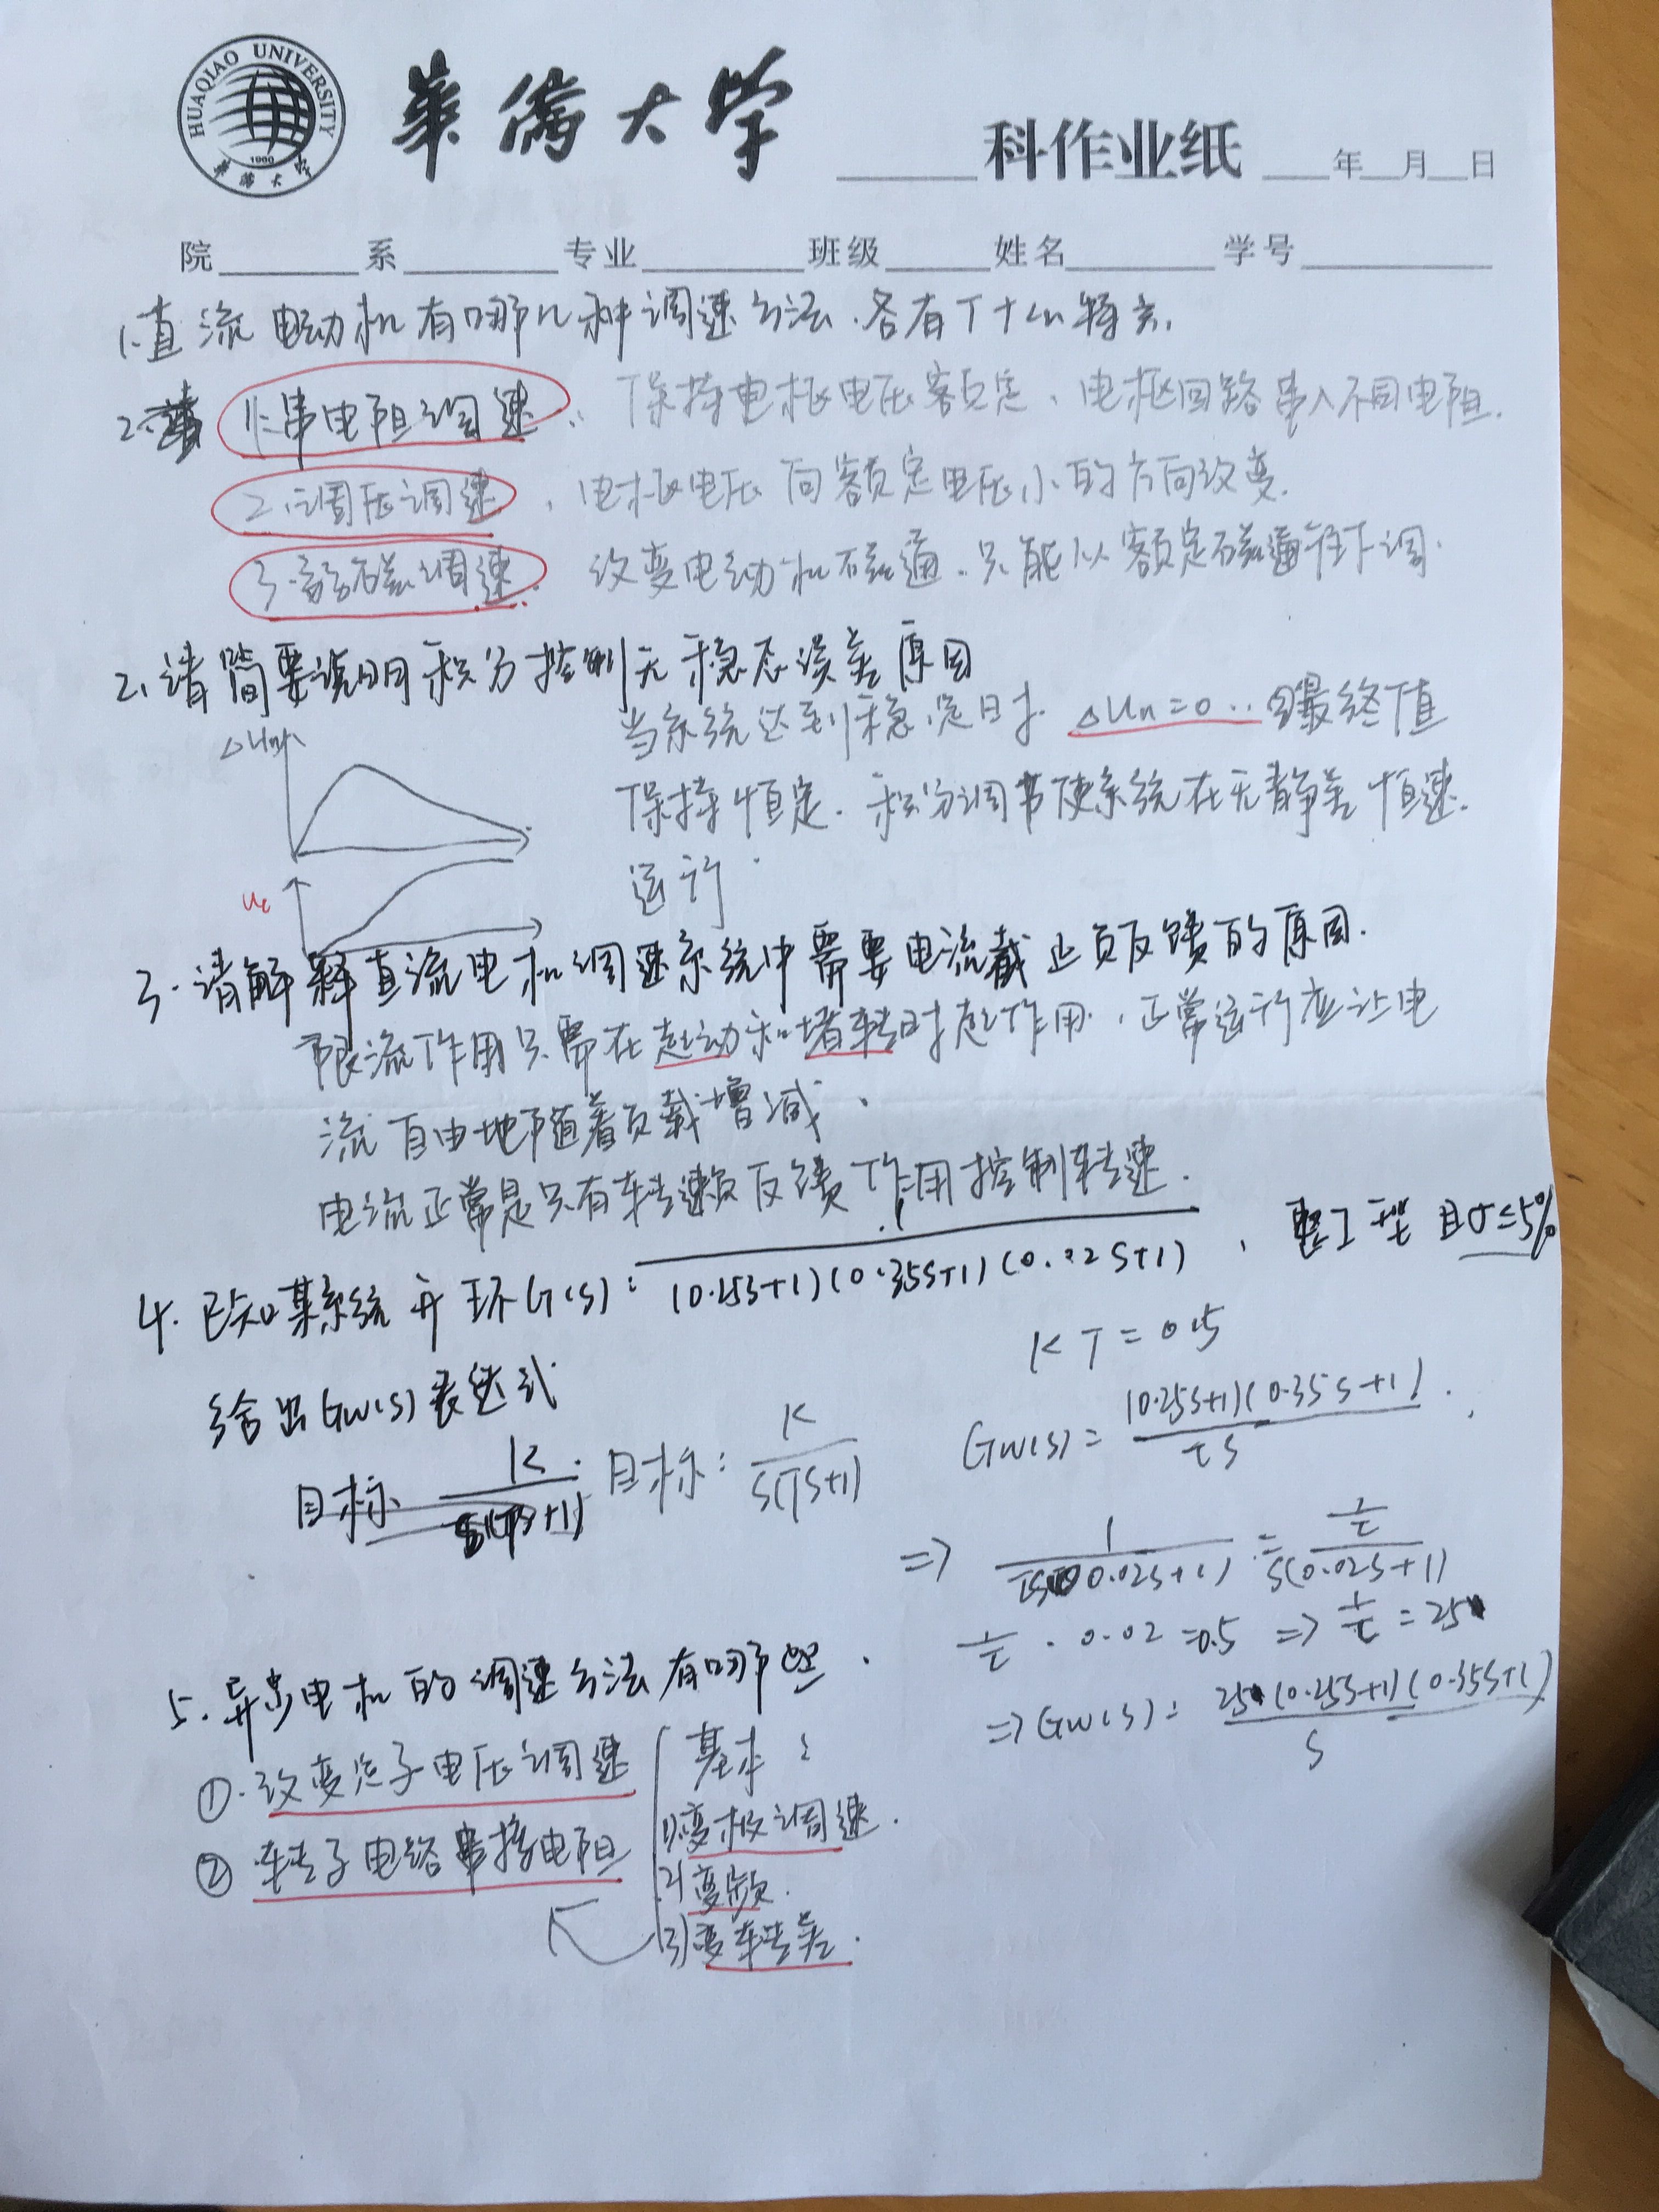 HUAQIAO UNIVERSITY 1960 华侨大学
華僑大学 科作业纸 年 月 日
院 系 专业 班级 姓名 学号
1.直流电动机有哪几种调速方法.各有什么特点.
2.
1.串电阻调速: 保持电枢电压额定、电枢回路串入不同电阻.
2.调压调速, 电枢电压向额定电压小的方向改变.
3.弱磁调速. 改变电动机磁通.只能从额定磁通往下调.
2.请简要说明积分控制无稳态误差原因
ΔUn
当系统达到稳定时. ΔUn=0 最终值
保持恒定. 积分调节使系统在无静差恒速.
运行.
Uc
3.请解释直流电机调速系统中需要电流截止负反馈的原因.
限流作用只需在起动和堵转时起作用.,正常运行应让电
流自由地随着负载增减.
电流正常是只有转速负反馈作用控制转速.
4.已知某系统开环G(s): 1/(0.25s+1)(0.35s+1)(0.02s+1), 要I型 且σ≤5%
给出Gw(s)表达式
KT=0.5
目标: K/s(Ts+1) 目标: K/s(Ts+1)
Gw(s)= (0.25s+1)(0.35s+1)/τs
=> 1/τs(0.02s+1) = 1/τ/s(0.02s+1)
1/τ·0.02=0.5 => 1/τ=25
=>Gw(s): 25(0.25s+1)(0.35s+1)/s
5.异步电机的调速方法有哪些.
①.改变定子电压调速
②转子电路串接电阻
基本:
1)变极调速.
2)变频.
3)变转差.